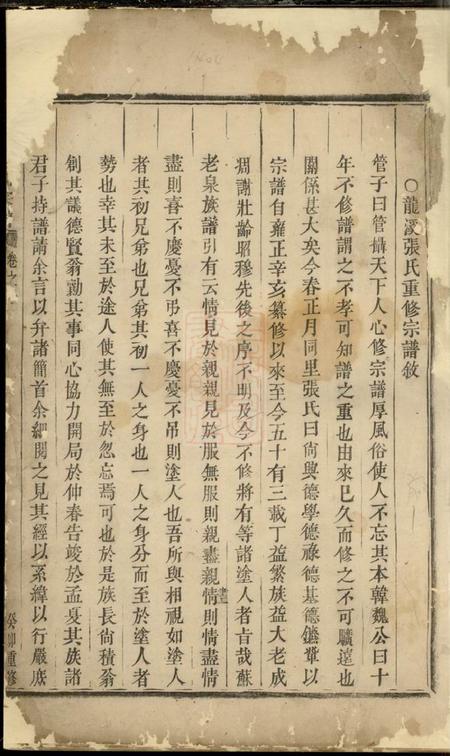 ○龍溪張氏重修宗譜敘
管子曰管攝天下人心修宗譜厚風俗使人不忘其本韓魏公曰十
年不修譜謂之不孝可知譜之重也由來已久而修之不可曠遠也
關係甚大矣今春正月同里張氏曰尙興德學德祿德基德鏞軰以
宗譜自雍正辛亥纂修以來至今五十有三載丁益繁族益大老成
凋謝壯齡昭穆先後之序不明及今不修將有等諸塗人者旨哉蘇
老泉族譜引有云情見於親親見於服無服則親盡親盡情則情盡情
盡則喜不慶憂不弔喜不慶憂不吊則塗人也吾所與相視如塗人
者其初兄弟也兄弟其初一人之身也一人之身分而至於塗人者
勢也幸其未至於途人使其無至於忽忘焉可也於是族長尙積翁
創其議德賢翁勷其事同心協力開局於仲春告竣於孟夏其族諸
君子持譜請余言以弁諸簡首余細閱之見其經以系緯以行嚴底
卷之
癸卯重修